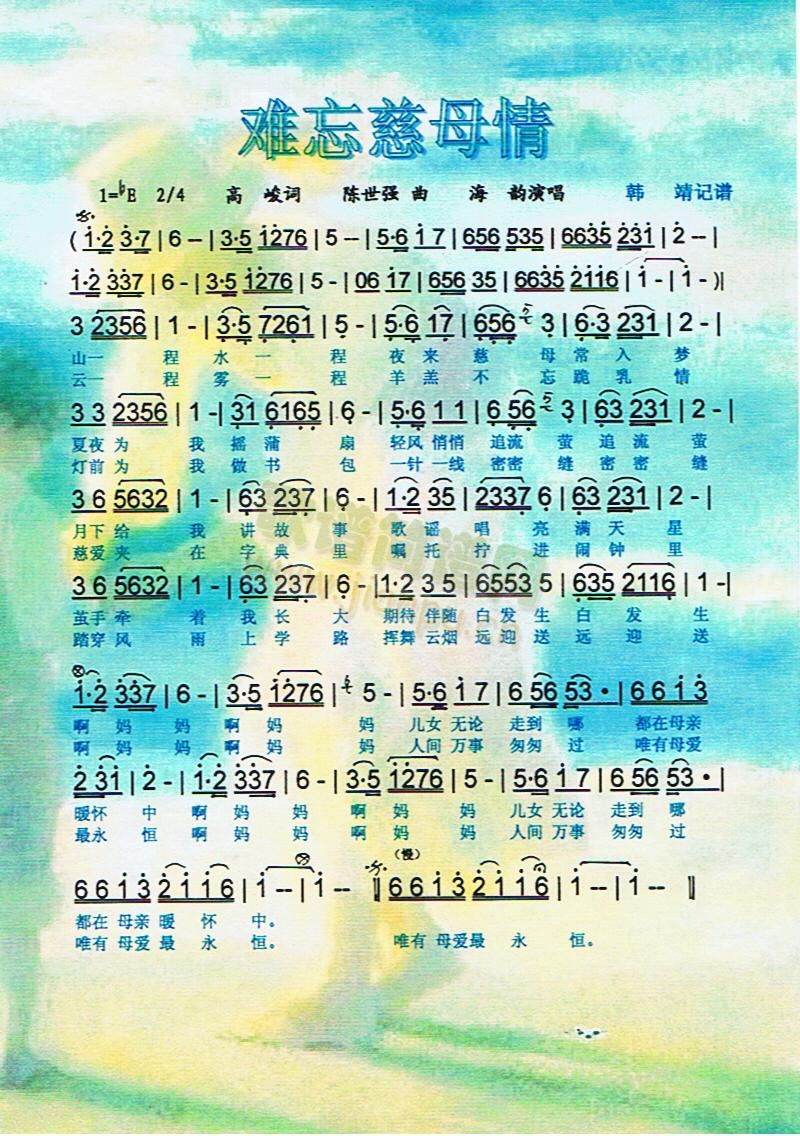 难忘慈母情
1=♭E 2/4 高 峻词 陈世强 曲 海 韵演唱 韩 靖记谱
( 1·2 3·7 | 6 -- | 3·5 1276 | 5 -- | 5·6 1 7 | 656 535 | 6635 231 | 2 -- |
1·2 337 | 6 -- | 3·5 1276 | 5 - | 06 17 | 656 35 | 6635 2116 | 1 - | 1 - )|
3 2356 | 1 - | 3·5 7261 | 5 - | 5·6 17 | 656 3 | 6·3 231 | 2 -- |
山一 程 水 一 程 夜 来 慈 母 常 入 梦
云一 程 雾 一 程 羊 羔 不 忘 跪 乳 情
3 3 2356 | 1 - | 31 6165 | 6 - | 5·6 1 1 | 6 56 3 | 63 231 | 2 -- |
夏夜 为 我 摇 蒲 扇 轻风 悄悄 追流 萤 追 流 萤
灯前 为 我 做 书 包 一针 一线 密密 缝 密密 缝
3 6 5632 | 1 - | 63 237 | 6 - | 1·2 35 | 2337 6 | 63 231 | 2 -- |
月下 给 我 讲 故 事 歌 谣 唱 亮 满 天 星
慈爱 夹 在 字 典 里 嘱 托 拧 进 闹 钟 里
3 6 5632 | 1 - | 63 237 | 6 - | 1·2 3 5 | 6553 5 | 635 2116 | 1 -- |
茧手 牵 着 我 长 大 期待 伴随 白 发 生 白 发 生
踏穿 风 雨 上 学 路 挥舞 云烟 远 迎 送 远 迎 送
1·2 337 | 6 - | 3·5 1276 | 5 - | 5·6 1 7 | 6 56 53 · | 6 6 1 3
啊 妈 妈 啊 妈 妈 儿女 无论 走到 哪 都在 母亲
啊 妈 妈 啊 妈 妈 人间 万事 匆匆 过 唯有 母爱
2 31 | 2 - | 1·2 337 | 6 -- | 3·5 1276 | 5 -- | 5·6 1 7 | 6 56 53 · |
暖怀 中 啊 妈 妈 啊 妈 妈 儿女 无论 走到 哪
最永 恒 啊 妈 妈 啊 妈 妈 人间 万事 匆匆 过
(慢)
6 6 1 3 2 1 1 6 | 1 -- | 1 -- ‖ 6 6 1 3 2 1 1 6 | 1 -- | 1 -- ‖
都在 母亲 暖 怀 中。
唯有 母爱 最 永 恒。 唯有 母爱最 永 恒。